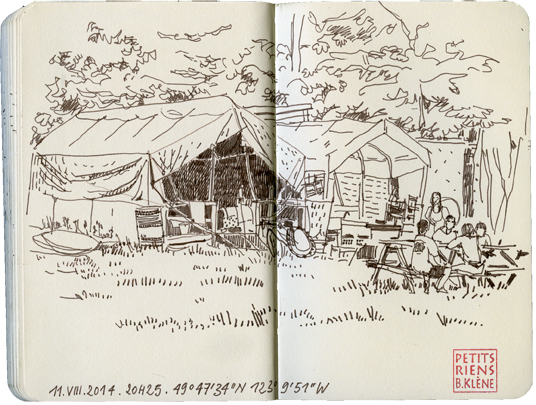 11.VIII.2014. 20H25. 49°47'34"N 123°9'51"W
PETITS
RIENS
B.KLÈNE